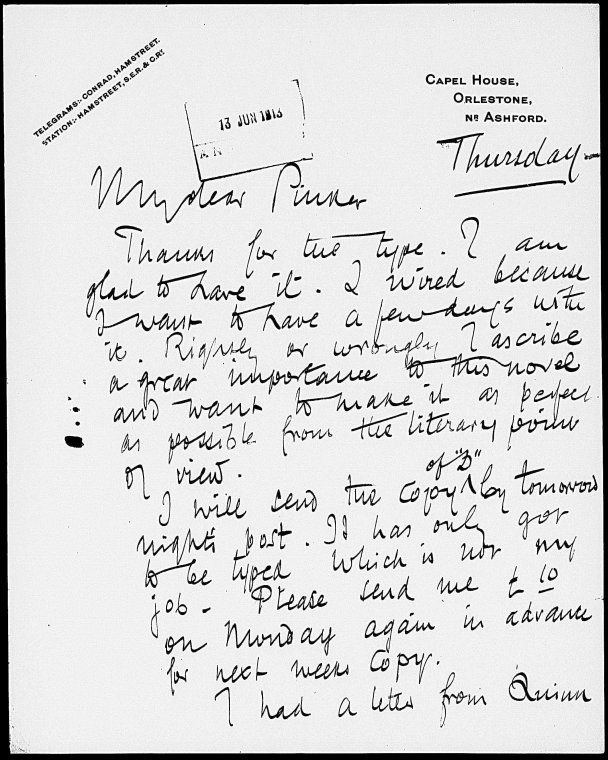 TELEGRAMS:- CONRAD, HAMSTREET.
STATION:- HAMSTREET, S.E.R. & C.RY
CAPEL HOUSE,
ORLESTONE,
NR ASHFORD.
13 JUN 1913
Thursday-
My dear Pinker
Thanks for the type. I am
glad to have it. I wired because
I want to have a few days with
it. Rightly or wrongly I ascribe
a great importance to this novel
and want to make it as perfect
as possible from the literary point
of view.
I will send the copy of "D" by tomorrow
night's post. It has only got
to be typed which is not my
job - Please send me £ 10
on Monday again in advance
for next weeks copy.
I had a letter from Quinn